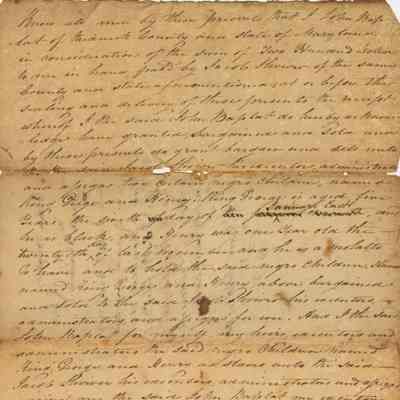 Know all men by these presents that I John Bap-
list of Frederick County and state of Maryland
in consideration of the sum of Two Hundred Dollars
to me in hand paid by Jacob Shover of the same
County and state aforementioned at or before the
sealing and delivery of these presents the receipt
whereof I the said John Baptist do hereby acknow-
ledge have granted bargained and Sold and
by these presents do grant bargain and sell unto
the said Jacob Shover his executors, administrators
and assigns two certain negro children, named
King George and Henry, King George is aged five
Years the sixth day of January last, and
he is black and Henry was one Year old the
twenty fifth day of last and he is a molatto
To have and to hold the said negro children Slaves
named King George and Henry above bargained
and Sold to the said Jacob Shover his executors,
administrators and assigns for ever. And I the said
John Baptist for myself my heirs, executors and
administrators the said negro Children named
King George and Henry as slaves unto the said
Jacob Shover his executors, administrators and assigns
against me the said John Baptist my executors